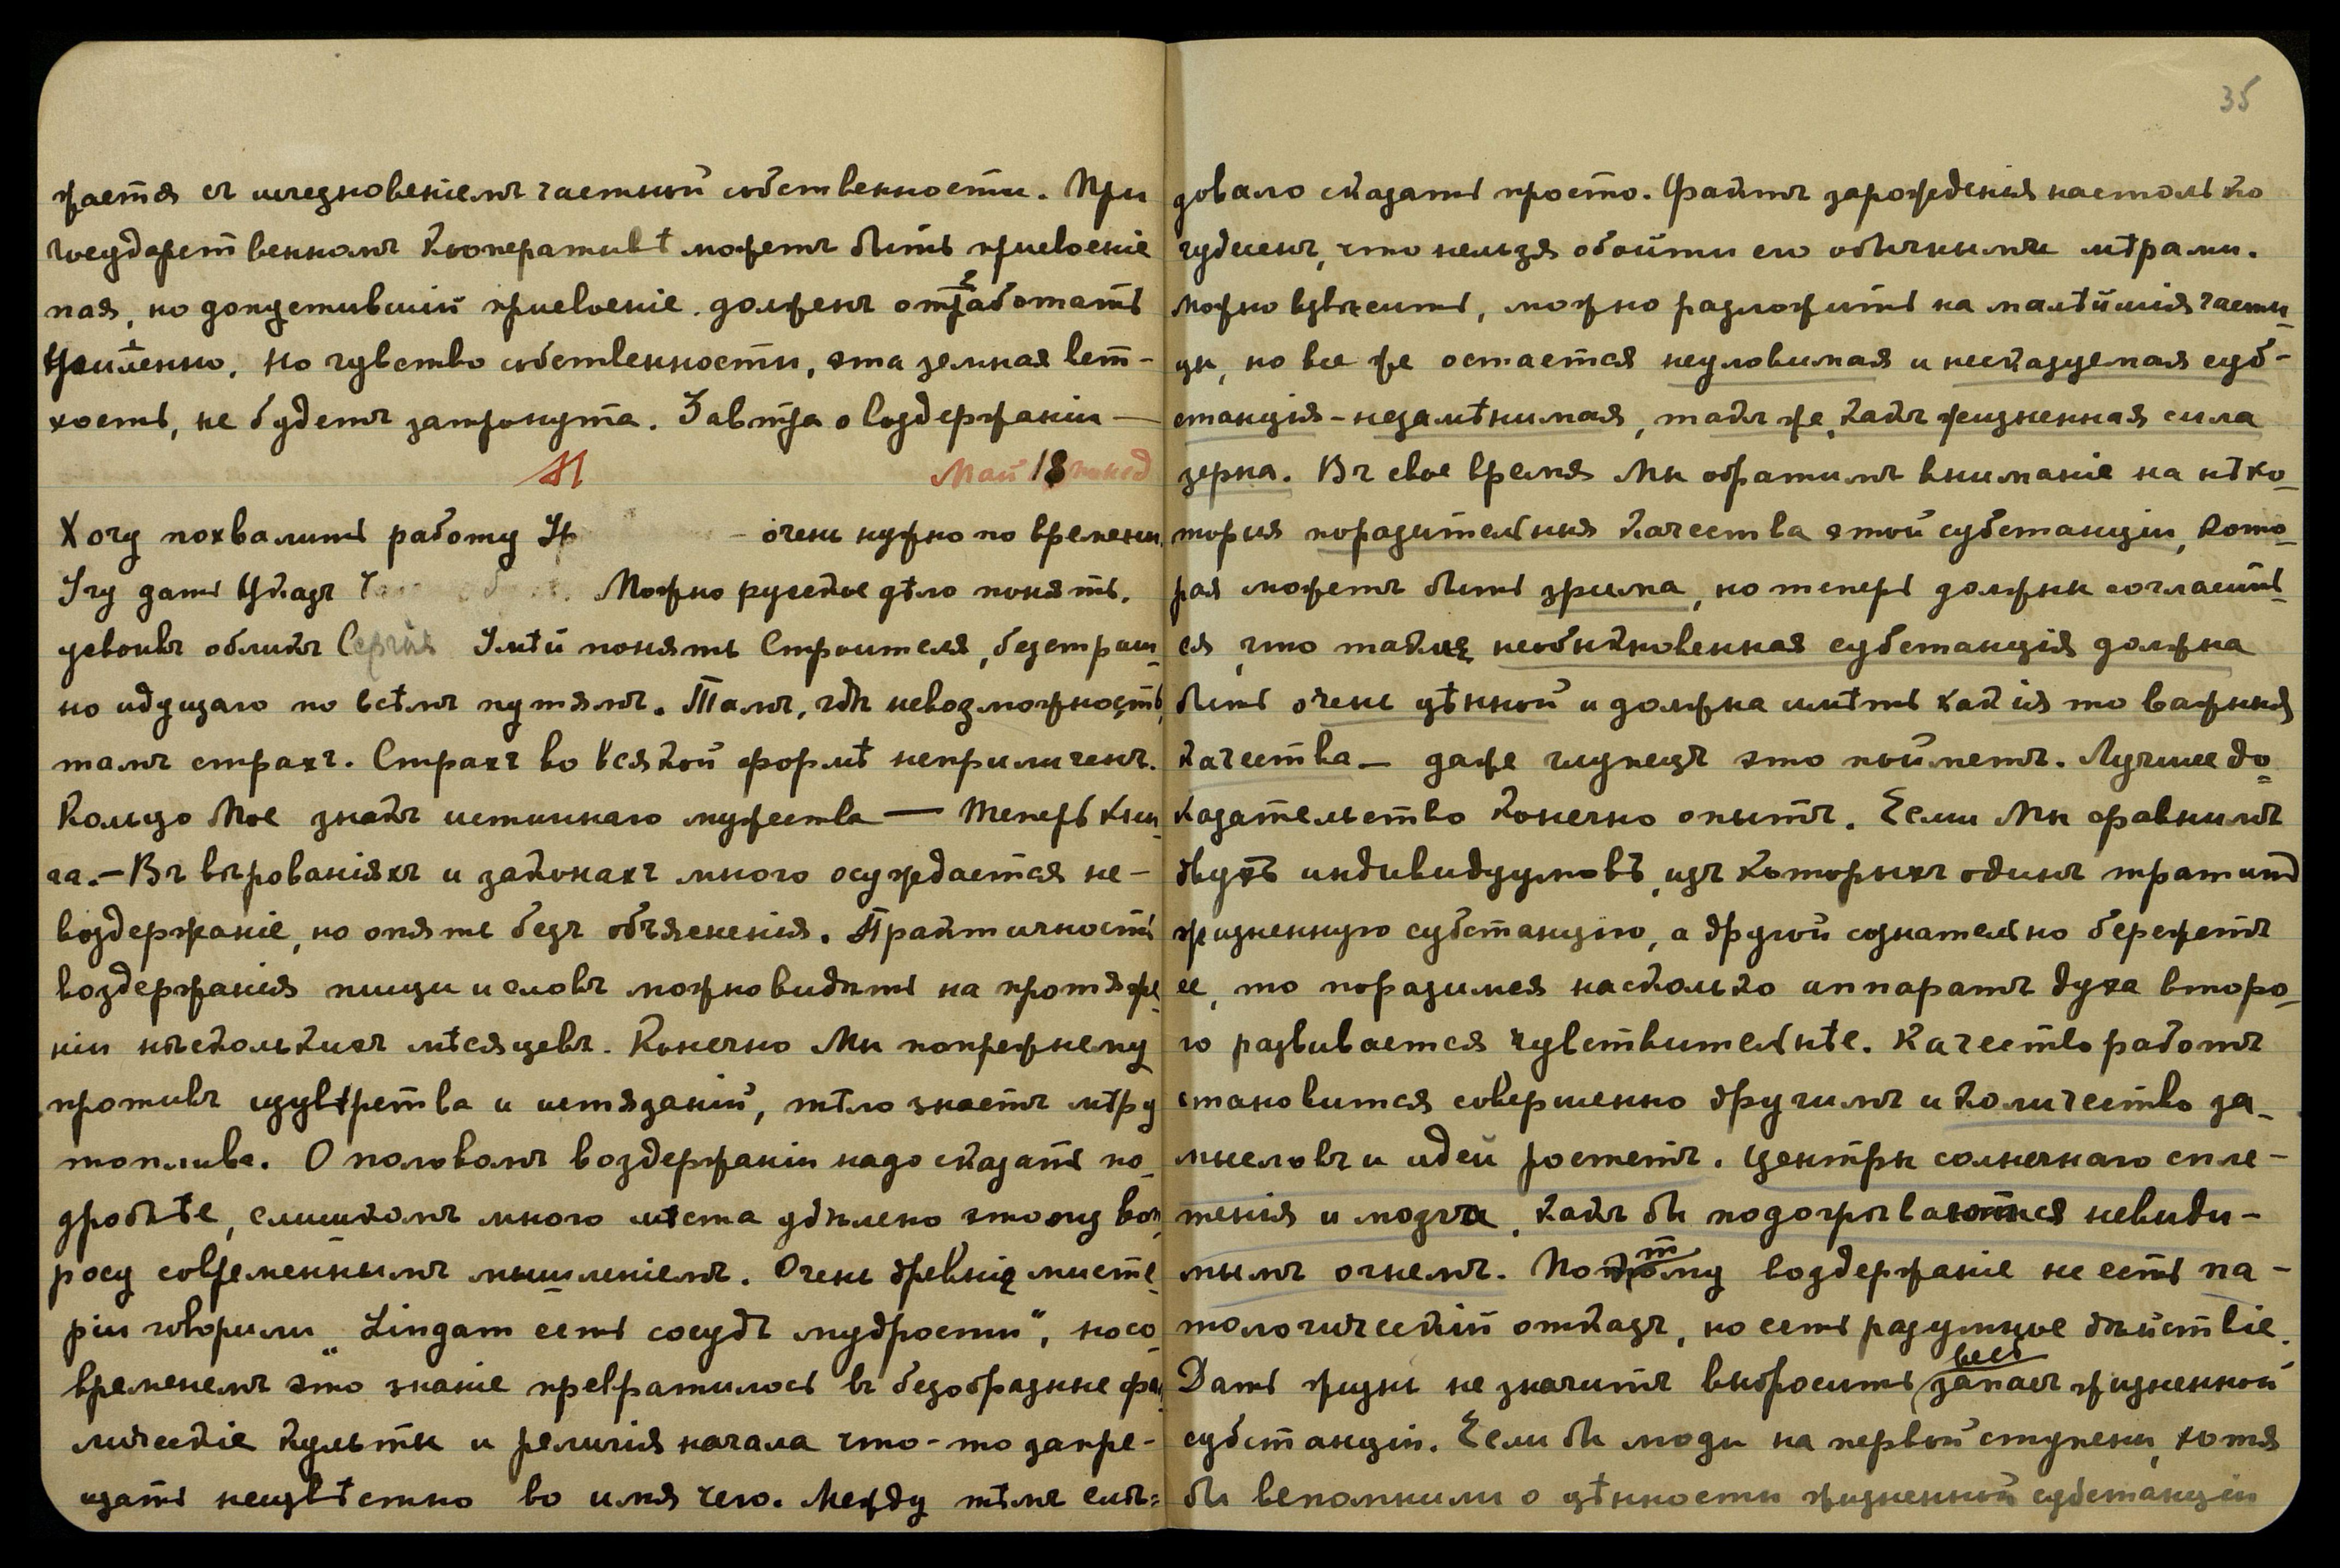 жается съ исчезновеніемъ частной собственности. При
государственномъ кооперативѣ можетъ быть присвоеніе
пая, но допустившій присвоеніе, долженъ отработать
усиленно, но чувство собственности, эта земная вет-
хость, не будетъ затронута. Завтра о воздержаніи —
Май 18
Хочу похвалить работу Ур — очень нужно по времени.
Учу дать Указъ Можно русское дѣло понять,
усвоивъ обликъ Сергія Умѣй понять Строителя, безстраш-
но идущаго по всѣмъ путямъ. Тамъ, гдѣ невозможность,
тамъ страхъ. Страхъ во всякой формѣ неприличенъ.
Кольцо Мое знакъ истиннаго мужества — Теперь кни-
га. — Въ вѣрованіяхъ и законахъ много осуждается не-
воздержаніе, но опять безъ объясненія. Практичность
воздержанія пищи и словъ можно видѣть на протяже-
ніи нѣсколькихъ мѣсяцевъ. Конечно Мы попрежнему
противъ изувѣрства и истязаній, тѣло знаетъ мѣру
топлива. О половомъ воздержаніи надо сказать по-
дробнѣе, слишкомъ много мѣста удѣлено этому воп-
росу современнымъ мышленіемъ. Очень древнія мисте-
ріи говорили „Lingam есть сосудъ мудрости“, но со
временемъ это знаніе превратилось въ безобразные фал-
лическіе культы и религія начала что-то запре-
щать неизвѣстно во имя чего. Между тѣмъ слѣ-
35
довало сказать просто. Фактъ зарожденія настолько
чудесенъ, что нельзя обойти его обычными мѣрами.
Можно взвѣсить, можно разложить на малѣйшія части-
цы, но все же остается неуловимая и несказуемая суб-
станція - незамѣнимая, такъ же, какъ жизненная сила
зерна. Въ свое время Мы обратимъ вниманіе на нѣко-
торыя поразительныя качества этой субстанціи, кото-
рая можетъ быть зрима, но теперь должны согласить-
ся, что такая необыкновенная субстанція должна
быть очень цѣнной и должна имѣть какія то важныя
качества — даже глупецъ это пойметъ. Лучшее до-
казательство конечно опытъ. Если Мы сравнимъ
двухъ индивидуумовъ, изъ которыхъ одинъ тратитъ
жизненную субстанцію, а другой сознательно бережетъ
ее, то поразимся насколько аппаратъ духа второ-
го развивается чувствительнѣе. Качество работъ
становится совершенно другимъ и количество за-
мысловъ и идей ростетъ. Центры солнечнаго спле-
тенія и мозга, какъ бы подогрѣваются невиди-
мымъ огнемъ. Потому воздержаніе не есть па-
тологическій отказъ, но есть разумное дѣйствіе.
Дать жизнь не значитъ выбросить весь запасъ жизненной
субстанціи. Если бы люди на первой ступени, хотя
бы вспомнили о цѣнности жизненной субстанціи